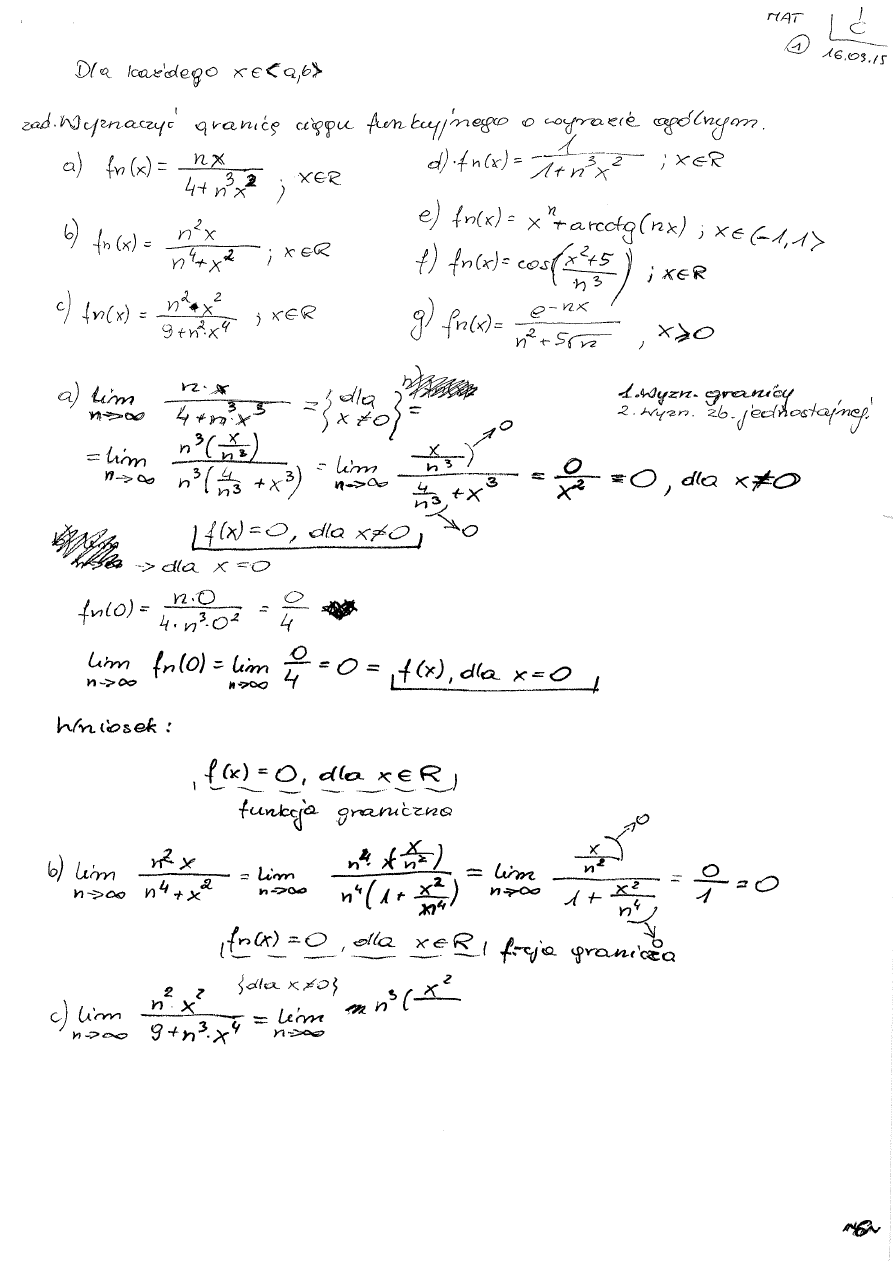 MAT
L ć
1 16.03.15
Dla każdego x∈<a,b>
zad. Wyznaczyć granicę ciągu funkcyjnego o wyrazie ogólnym.
a) fn(x) = nx / (4+n³x²) ; x∈R
b) fn(x) = n²x / (n⁴+x²) ; x∈R
c) fn(x) = n²·x² / (9+n²·x⁴) ; x∈R
d) fn(x) = 1 / (1+n³x²) ; x∈R
e) fn(x) = xⁿ+arctg(nx) ; x∈(-1,1>
f) fn(x) = cos((x²+5)/n³) ; x∈R
g) fn(x) = e^(-nx) / (n²+5√n) , x≥0
1. Wyzn. granicy
2. Wyzn. zb. jednostajnej
a) lim n→∞ n·x / (4+n³·x³) = {dla x≠0} =
= lim n→∞ n³(x/n³) / n³(4/n³ + x³) = lim n→∞ (x/n³ → 0) / (4/n³ → 0 + x³) = 0/x² = 0, dla x≠0
f(x) = 0, dla x≠0
→ dla x=0
fn(0) = n·0 / (4·n³·0²) = 0/4
lim n→∞ fn(0) = lim n→∞ 0/4 = 0 = f(x), dla x=0
Wniosek:
f(x) = 0, dla x∈R
funkcja graniczna
b) lim n→∞ n²x / (n⁴+x²) = lim n→∞ n⁴·(x/n²) / n⁴(1+x²/n⁴) = lim n→∞ (x/n² → 0) / (1+x²/n⁴ → 0) = 0/1 = 0
fn(x) = 0, dla x∈R f-cja
{dla x≠0}
c) lim n→∞ n²·x² / (9+n³·x⁴) = lim n→∞ n³(x²/